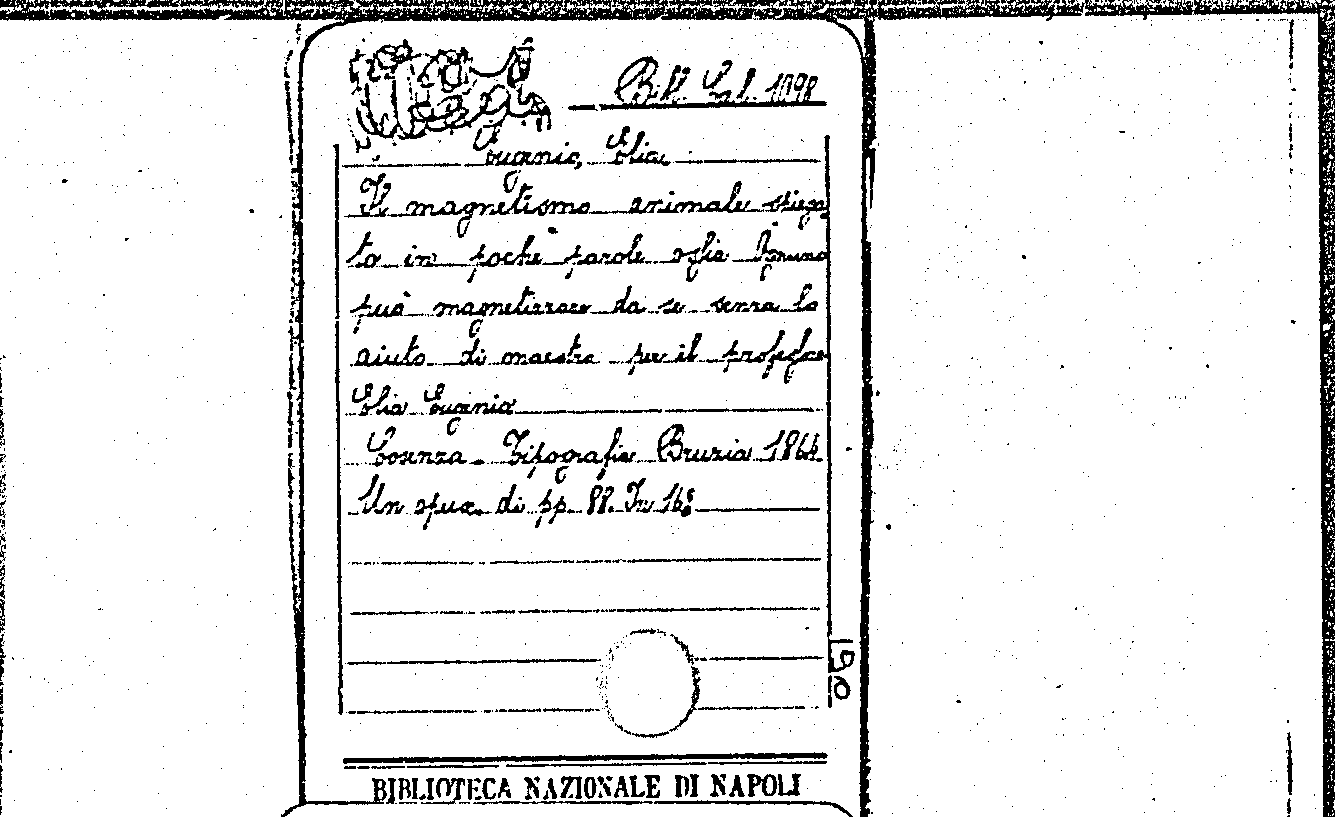 Bibl. Cal. 1098
Eugenio, Elia
Il magnetismo animale spiega
to in poche parole ossia Ognuno
può magnetizzare da se senza lo
aiuto di maestro per il professore
Elia Eugenio
Cosenza - Tipografia Bruzia 1864
Un opusc. di pp. 88. In 16º
190
BIBLIOTECA NAZIONALE DI NAPOLI